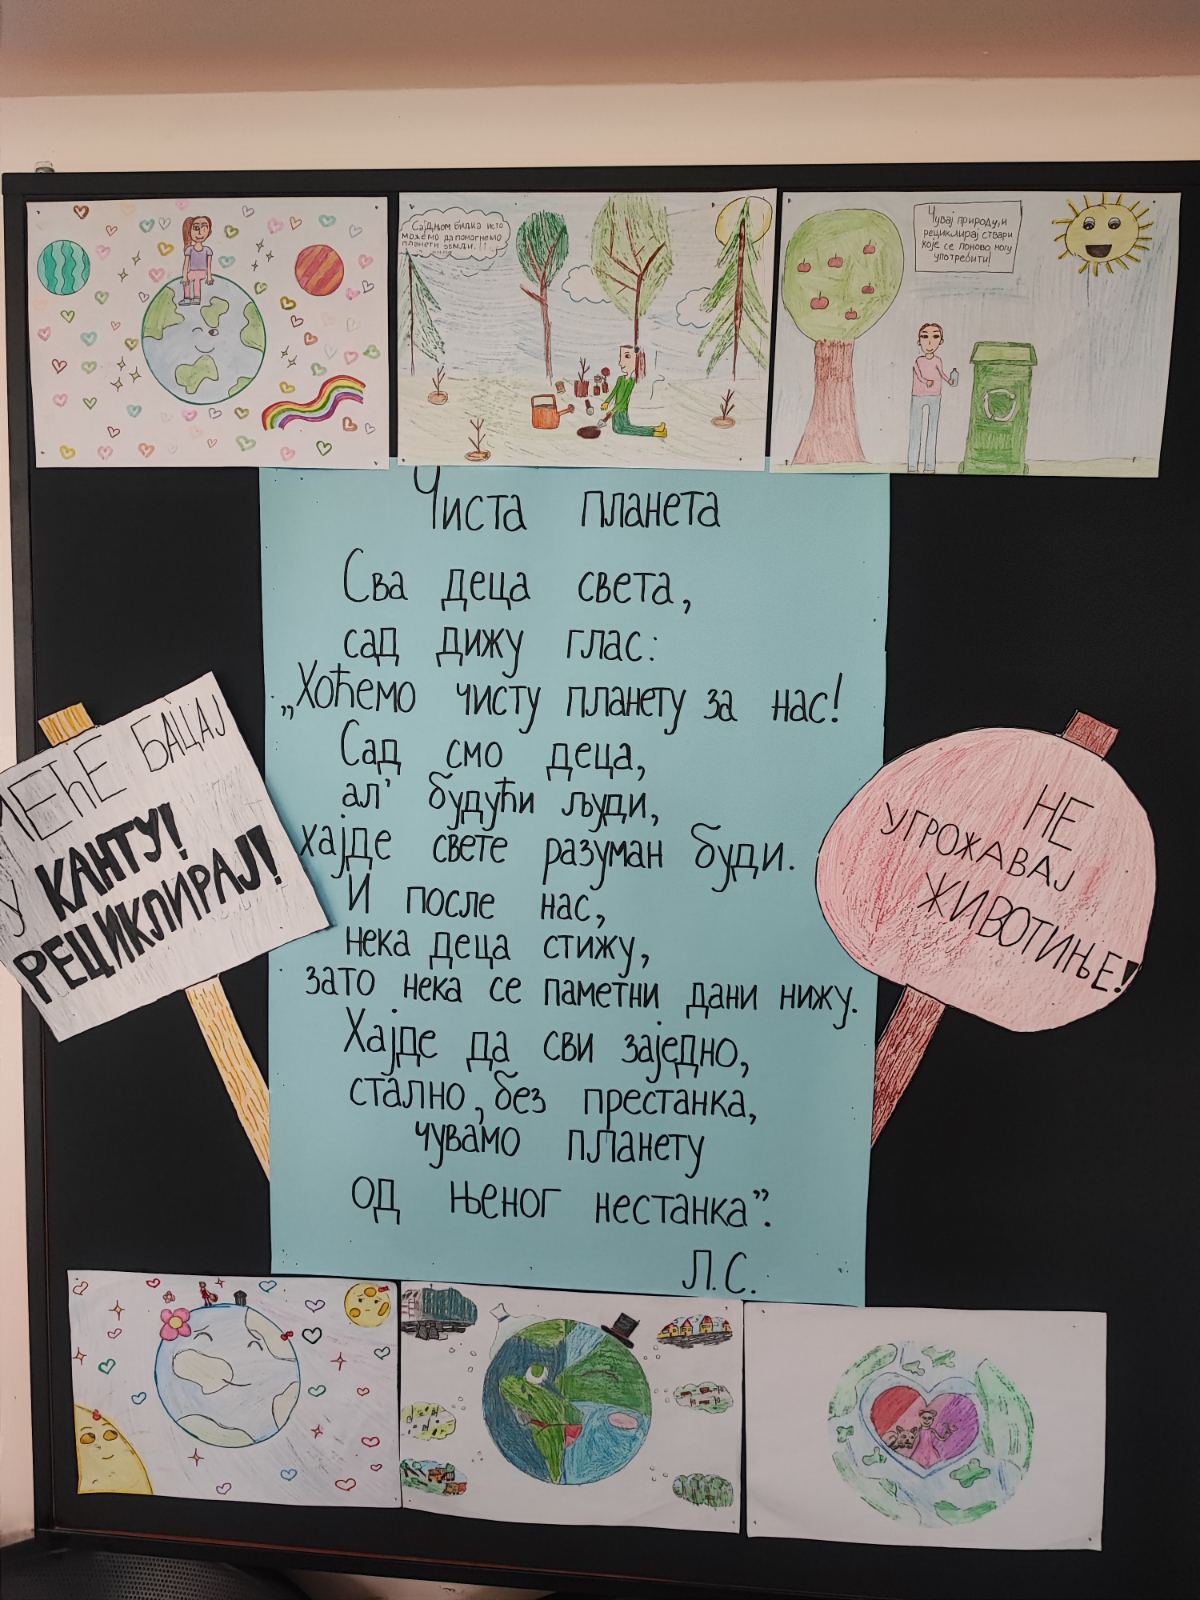 Сађњом билка исто
можемо да помогнемо
планети земљи. !!
Чувај природу,и
рециклирај ствари
које се поново могу
употребити!
Чиста планета
Сва деца света,
сад дижу глас:
„Хоћемо чисту планету за нас!
Сад смо деца,
ал' будући људи,
хајде свете разуман буди.
И после нас,
нека деца стижу,
зато нека се паметни дани нижу.
Хајде да сви заједно,
стално, без престанка,
чувамо планету
од њеног нестанка”.
Л.С.
БАЦАЈ
У КАНТУ!
РЕЦИКЛИРАЈ!
НЕ
УГРОЖАВАЈ
ЖИВОТИЊЕ!